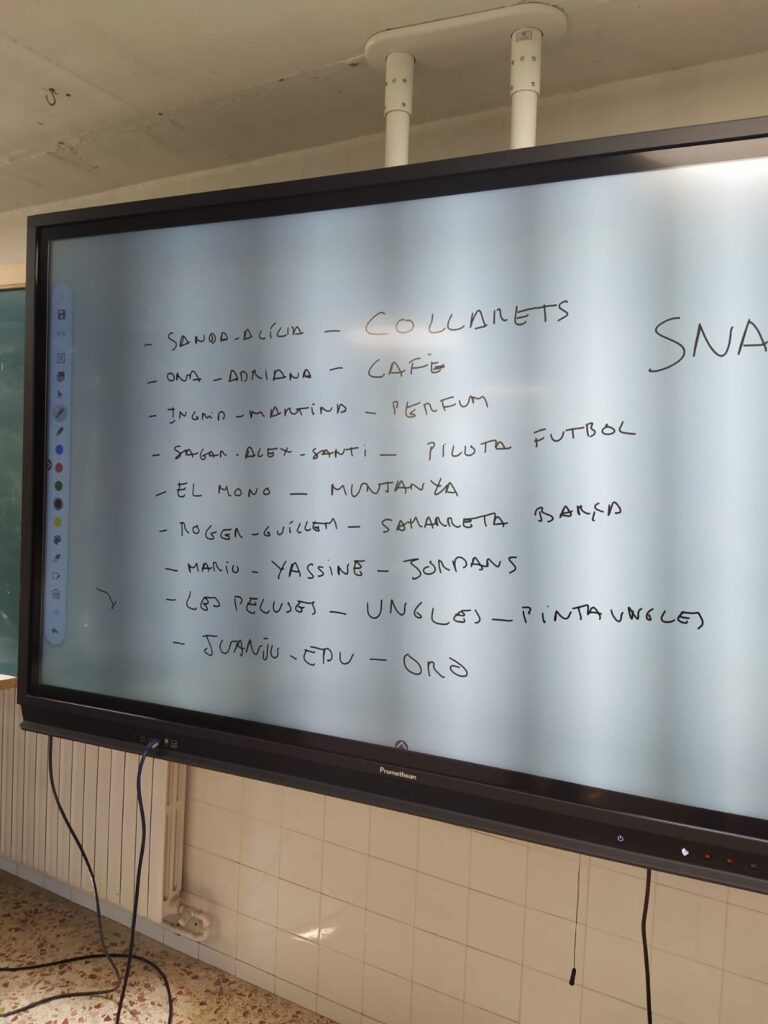 - SANDA-ALÍCIA - COLLARETS
SNA
- ONA-ADRIANA - CAFÈ
- INGRID-MARTINA - PERFUM
- SAGAR-ALEX-SANTI - PILOTA FUTBOL
- EL MONO - MUNTANYA
- ROGER-GUILLEM - SAMARRETA BARÇA
- MARIO - YASSINE - JORDANS
- LES PELUSES - UNGLES - PINTAUNGLES
- JUANJU-EDU - ORO
Promethean